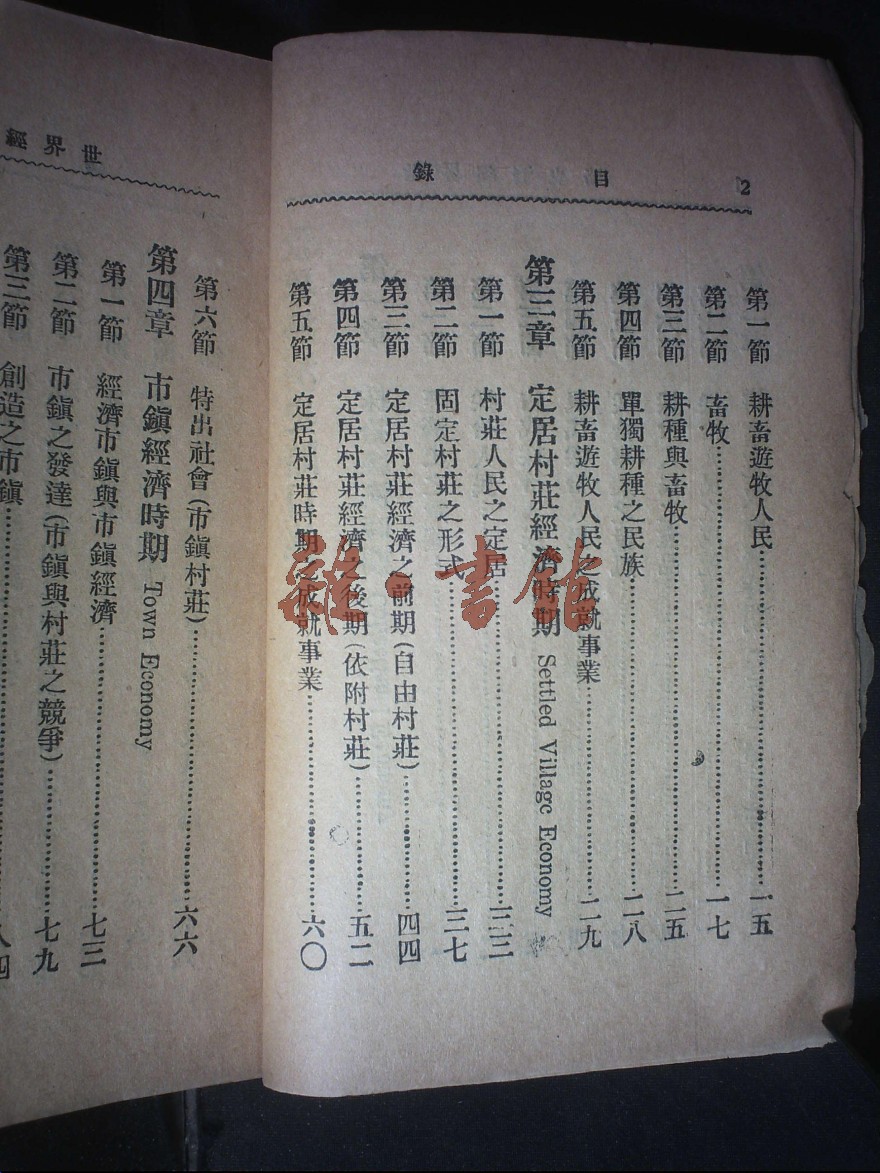 2 目錄
第一節 耕畜遊牧人民 一五
第二節 畜牧 一七
第三節 耕種與畜牧 二五
第四節 單獨耕種之民族 二八
第五節 耕畜遊牧人民之成就事業 二九
第三章 定居村莊經濟時期 Settled Village Economy
第一節 村莊人民之定居 三三
第二節 固定村莊之形式 三七
第三節 定居村莊經濟之前期(自由村莊) 四四
第四節 定居村莊經濟之後期(依附村莊) 五二
第五節 定居村莊時期之成就事業 六〇
世界經
第六節 特出社會(市鎭村莊) 六六
第四章 市鎭經濟時期 Town Economy
第一節 經濟市鎭與市鎭經濟 七三
第二節 市鎭之發達(市鎭與村莊之競爭) 七九
第三節 創造之市鎭 八四
雜·書館